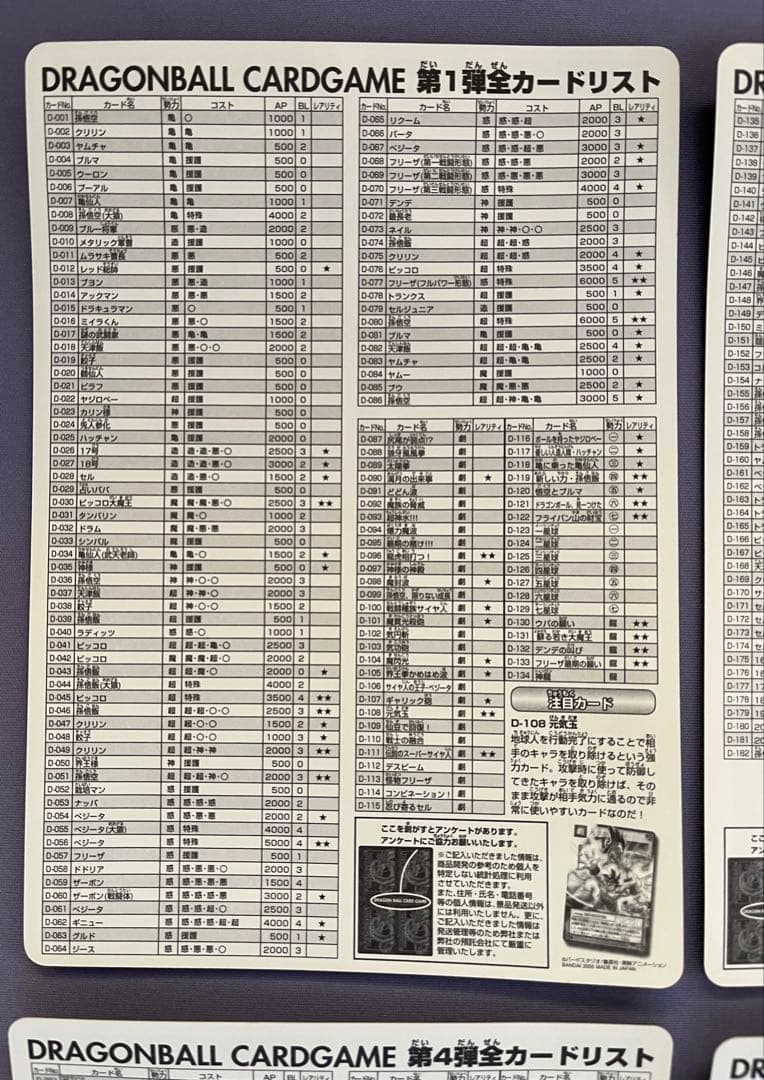 DRAGONBALL CARDGAME 第1弾全カードリスト
カードNo. カード名 勢力 コスト AP BL レアリティ
D-001 孫悟空 亀 〇 1000 1
D-002 クリリン 亀 亀 1000 1
D-003 ヤムチャ 亀 亀 500 2
D-004 ブルマ 亀 援護 500 0
D-005 ウーロン 亀 援護 500 0
D-006 プーアル 亀 援護 500 0
D-007 亀仙人 亀 亀 1000 1
D-008 孫悟空(大猿) 亀 特殊 4000 2
D-009 ブルー将軍 悪 悪・造 2000 2
D-010 メタリック軍曹 造 援護 1000 0
D-011 ムラサキ曹長 悪 悪 500 2
D-012 レッド総帥 悪 援護 500 0 ★
D-013 ブヨン 悪 悪・造 1000 1
D-014 アックマン 悪 悪・悪 1500 2
D-015 ドラキュラマン 悪 〇 500 1
D-016 ミイラくん 悪 悪・〇 1500 2
D-017 謎の武闘家 亀 亀・亀 1500 2
D-018 天津飯 悪 悪・〇・〇 2000 2
D-019 餃子 悪 援護 500 0
D-020 鶴仙人 悪 援護 500 0
D-021 ピラフ 悪 援護 500 0
D-022 ヤジロベー 超 援護 1000 0
D-023 カリン様 神 援護 500 0
D-024 兎人参化 悪 援護 500 0
D-025 ハッチャン 亀 援護 2000 0
D-026 17号 造 造・造・悪・〇 2500 3 ★
D-027 18号 造 造・造・悪・〇 3000 2 ★
D-028 セル 造 造・悪・〇 1500 2 ★
D-029 占いババ 悪 援護 500 0
D-030 ピッコロ大魔王 魔 魔・魔・悪・〇 2500 3 ★★
D-031 タンバリン 魔 魔・〇 1000 2
D-032 ドラム 魔 魔・悪・悪 2000 2
D-033 シンバル 魔 援護 500 1
D-034 亀仙人(武天老師) 亀 亀・〇 1500 2 ★
D-035 神様 神 援護 500 0 ★
D-036 孫悟空 神 神・〇・〇 2000 3
D-037 天津飯 超 神・神・〇 2000 3
D-038 餃子 超 神・〇・〇 1500 2
D-039 孫悟飯 超 援護 500 1
D-040 ラディッツ 感 感・〇 1000 1
D-041 ピッコロ 超 超・超・亀・〇 2500 3
D-042 ピッコロ 魔 魔・魔・超・〇 2000 2
D-043 孫悟飯 超 超・魔・〇 2000 0 ★
D-044 孫悟飯(大猿) 超 特殊 4000 2
D-045 ピッコロ 超 特殊 3500 4 ★★
D-046 孫悟飯 超 超・超・〇・〇 2500 3 ★★
D-047 クリリン 超 超・〇・〇 1500 2 ★
D-048 餃子 超 超・〇・〇 1000 3 ★
D-049 クリリン 超 超・神・神 2000 3 ★★
D-050 界王様 神 援護 500 0
D-051 孫悟空 超 超・超・神・〇 2000 3 ★★
D-052 栽培マン 感 援護 500 0
D-053 ナッパ 感 感・感・感 2000 2
D-054 ベジータ 感 感・悪・悪 2000 2 ★
D-055 ベジータ(大猿) 感 特殊 4000 4
D-056 ベジータ 感 特殊 5000 4 ★★
D-057 フリーザ 感 援護 500 1
D-058 ドドリア 感 感・悪・悪・〇 2000 3
D-059 ザーボン 感 感・悪・悪・悪 1500 4
D-060 ザーボン(戦闘体) 感 感・感・悪・悪 3000 2 ★
D-061 ベジータ 感 感・感・超・〇 2500 3
D-062 ギニュー 感 感・感・感・超・超 4000 4 ★
D-063 グルド 感 援護 500 1 ★
D-064 ジース 感 感・悪・悪・〇 2000 3
カードNo. カード名 勢力 コスト AP BL レアリティ
D-065 リクーム 感 感・感・超 2000 3 ★
D-066 バータ 感 感・感・悪・〇 2000 3
D-067 ベジータ 感 感・感・超・悪 3000 3 ★
D-068 フリーザ(第一戦闘形態) 感 感・感・悪 2000 2 ★
D-069 フリーザ(第二戦闘形態) 感 感・感・悪・悪 3000 3
D-070 フリーザ(第三戦闘形態) 感 特殊 4000 4 ★
D-071 デンデ 神 援護 500 0
D-072 最長老 神 援護 500 0
D-073 ネイル 神 神・神・〇・〇 2500 3
D-074 孫悟飯 超 超・超・感 2000 3
D-075 クリリン 超 超・超・感 2000 4 ★
D-076 ピッコロ 超 特殊 3500 4 ★
D-077 フリーザ(フルパワー形態) 感 特殊 6000 5 ★★
D-078 トランクス 超 援護 500 1 ★
D-079 セルジュニア 造 援護 500 0
D-080 孫悟空 超 特殊 6000 5 ★★
D-081 ブルマ 亀 援護 500 0 ★
D-082 天津飯 超 超・超・亀・亀 2500 4 ★
D-083 ヤムチャ 超 超・亀・亀 2500 2 ★
D-084 ヤムー 魔 援護 1000 0
D-085 ブウ 魔 魔・悪・悪 2500 2 ★
D-086 孫悟空 超 超・神・亀・亀 3000 5 ★
カードNo. カード名 勢力 レアリティ
D-087 尻尾が弱点!? 劇
D-088 狼牙風風拳 劇
D-089 太陽拳 劇
D-090 満月の出来事 劇 ★
D-091 どどん波 劇
D-092 魔族の脅威 劇
D-093 超神水!!! 劇
D-094 爆力魔波 劇
D-095 最期の賭け!!! 劇
D-096 龍虎相打つ! 劇 ★★
D-097 神様の神殿 劇
D-098 魔封波 劇 ★
D-099 孫悟空、限りない成長 劇
D-100 戦闘種族サイヤ人 劇 ★
D-101 魔貫光殺砲 劇 ★
D-102 気円斬 劇
D-103 気功砲 劇
D-104 魔閃光 劇 ★
D-105 界王拳かめはめ波 劇 ★
D-106 サイヤ人の王子・ベジータ 劇
D-107 ギャリック砲 劇 ★
D-108 元気玉 劇 ★★
D-109 仙豆で回復! 劇
D-110 戦士の融合 劇
D-111 伝説のスーパーサイヤ人 劇 ★★
D-112 デスビーム 劇
D-113 怪物フリーザ 劇
D-114 コンビネーション! 劇
D-115 忍び寄るセル 劇
カードNo. カード名 勢力 レアリティ
D-116 ボールを持ったヤジロベー ㊀ ★
D-117 優しい人造人間・ハッチャン ㊁ ★
D-118 亀に乗った亀仙人 ㊂ ★
D-119 新しい力・孫悟飯 ㊃ ★★
D-120 悟空とブルマ ㊄ ★
D-121 ドラゴンボール、見ーつけた ㊅ ★★
D-122 フライパン山の財宝 ㊆ ★★
D-123 一星球 ㊀
D-124 二星球 ㊁
D-125 三星球 ㊂
D-126 四星球 ㊃
D-127 五星球 ㊄
D-128 六星球 ㊅
D-129 七星球 ㊆
D-130 ウパの願い 龍 ★★
D-131 蘇る若き大魔王 龍 ★★
D-132 デンデの叫び 龍 ★★
D-133 フリーザ最期の願い 龍 ★★
D-134 神龍 龍
注目カード
D-108 元気玉
地球人を行動完了にすることで相
手のキャラを取り除けるという強
力カード。攻撃時に使って防御し
てきたキャラを取り除けば、その
まま攻撃が相手気力に通るので非
常に使いやすいカードなのだ!
ここを剥がすとアンケートがあります。
アンケートにご協力お願いいたします。
※ご記入いただきました情報は、
商品開発の参考のため個人を
特定しない統計処理に利用
させていただきます。
また、住所・氏名・電話番号
等の個人情報は、景品発送以外
には利用いたしません。更に、
ご記入いただきました情報は
発送管理等のため弊社または
弊社の預託会社にて厳重に
管理いたします。
DRAGON BALL CARD GAME
©バードスタジオ/集英社・東映アニメーション
BANDAI 2005 MADE IN JAPAN
DRAGONBALL CARDGAME 第4弾全カードリスト
カード名 勢力 コスト AP BL レアリティ